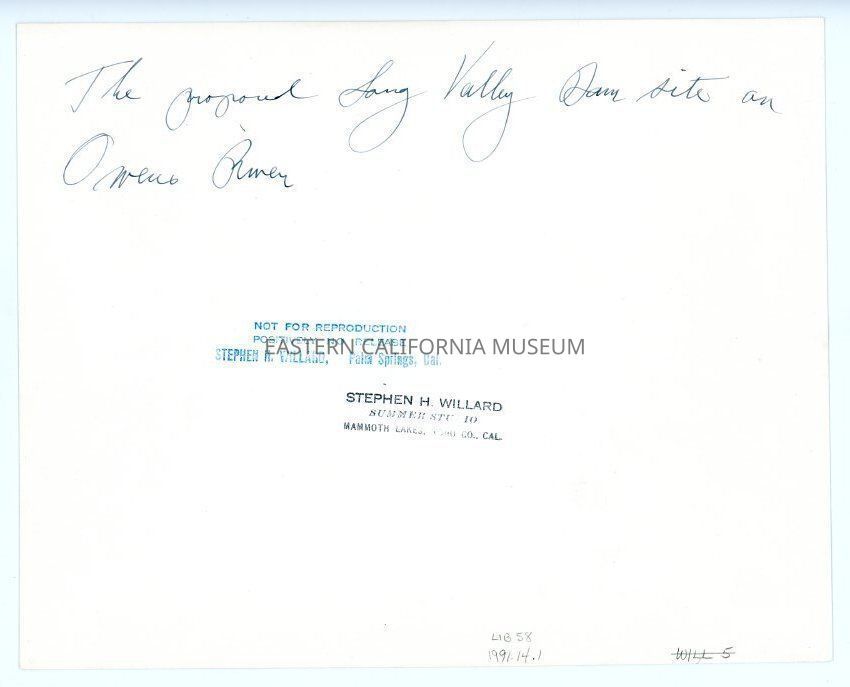 The proposed Long Valley Dam site on
Owens River
NOT FOR REPRODUCTION
POSITIVELY NO RELEASE
EASTERN CALIFORNIA MUSEUM
STEPHEN H. WILLARD, Palm Springs, Cal.
STEPHEN H. WILLARD
SUMMER STUDIO
MAMMOTH LAKES, MONO CO., CAL.
LIB 58
1991.14.1
WILL 5